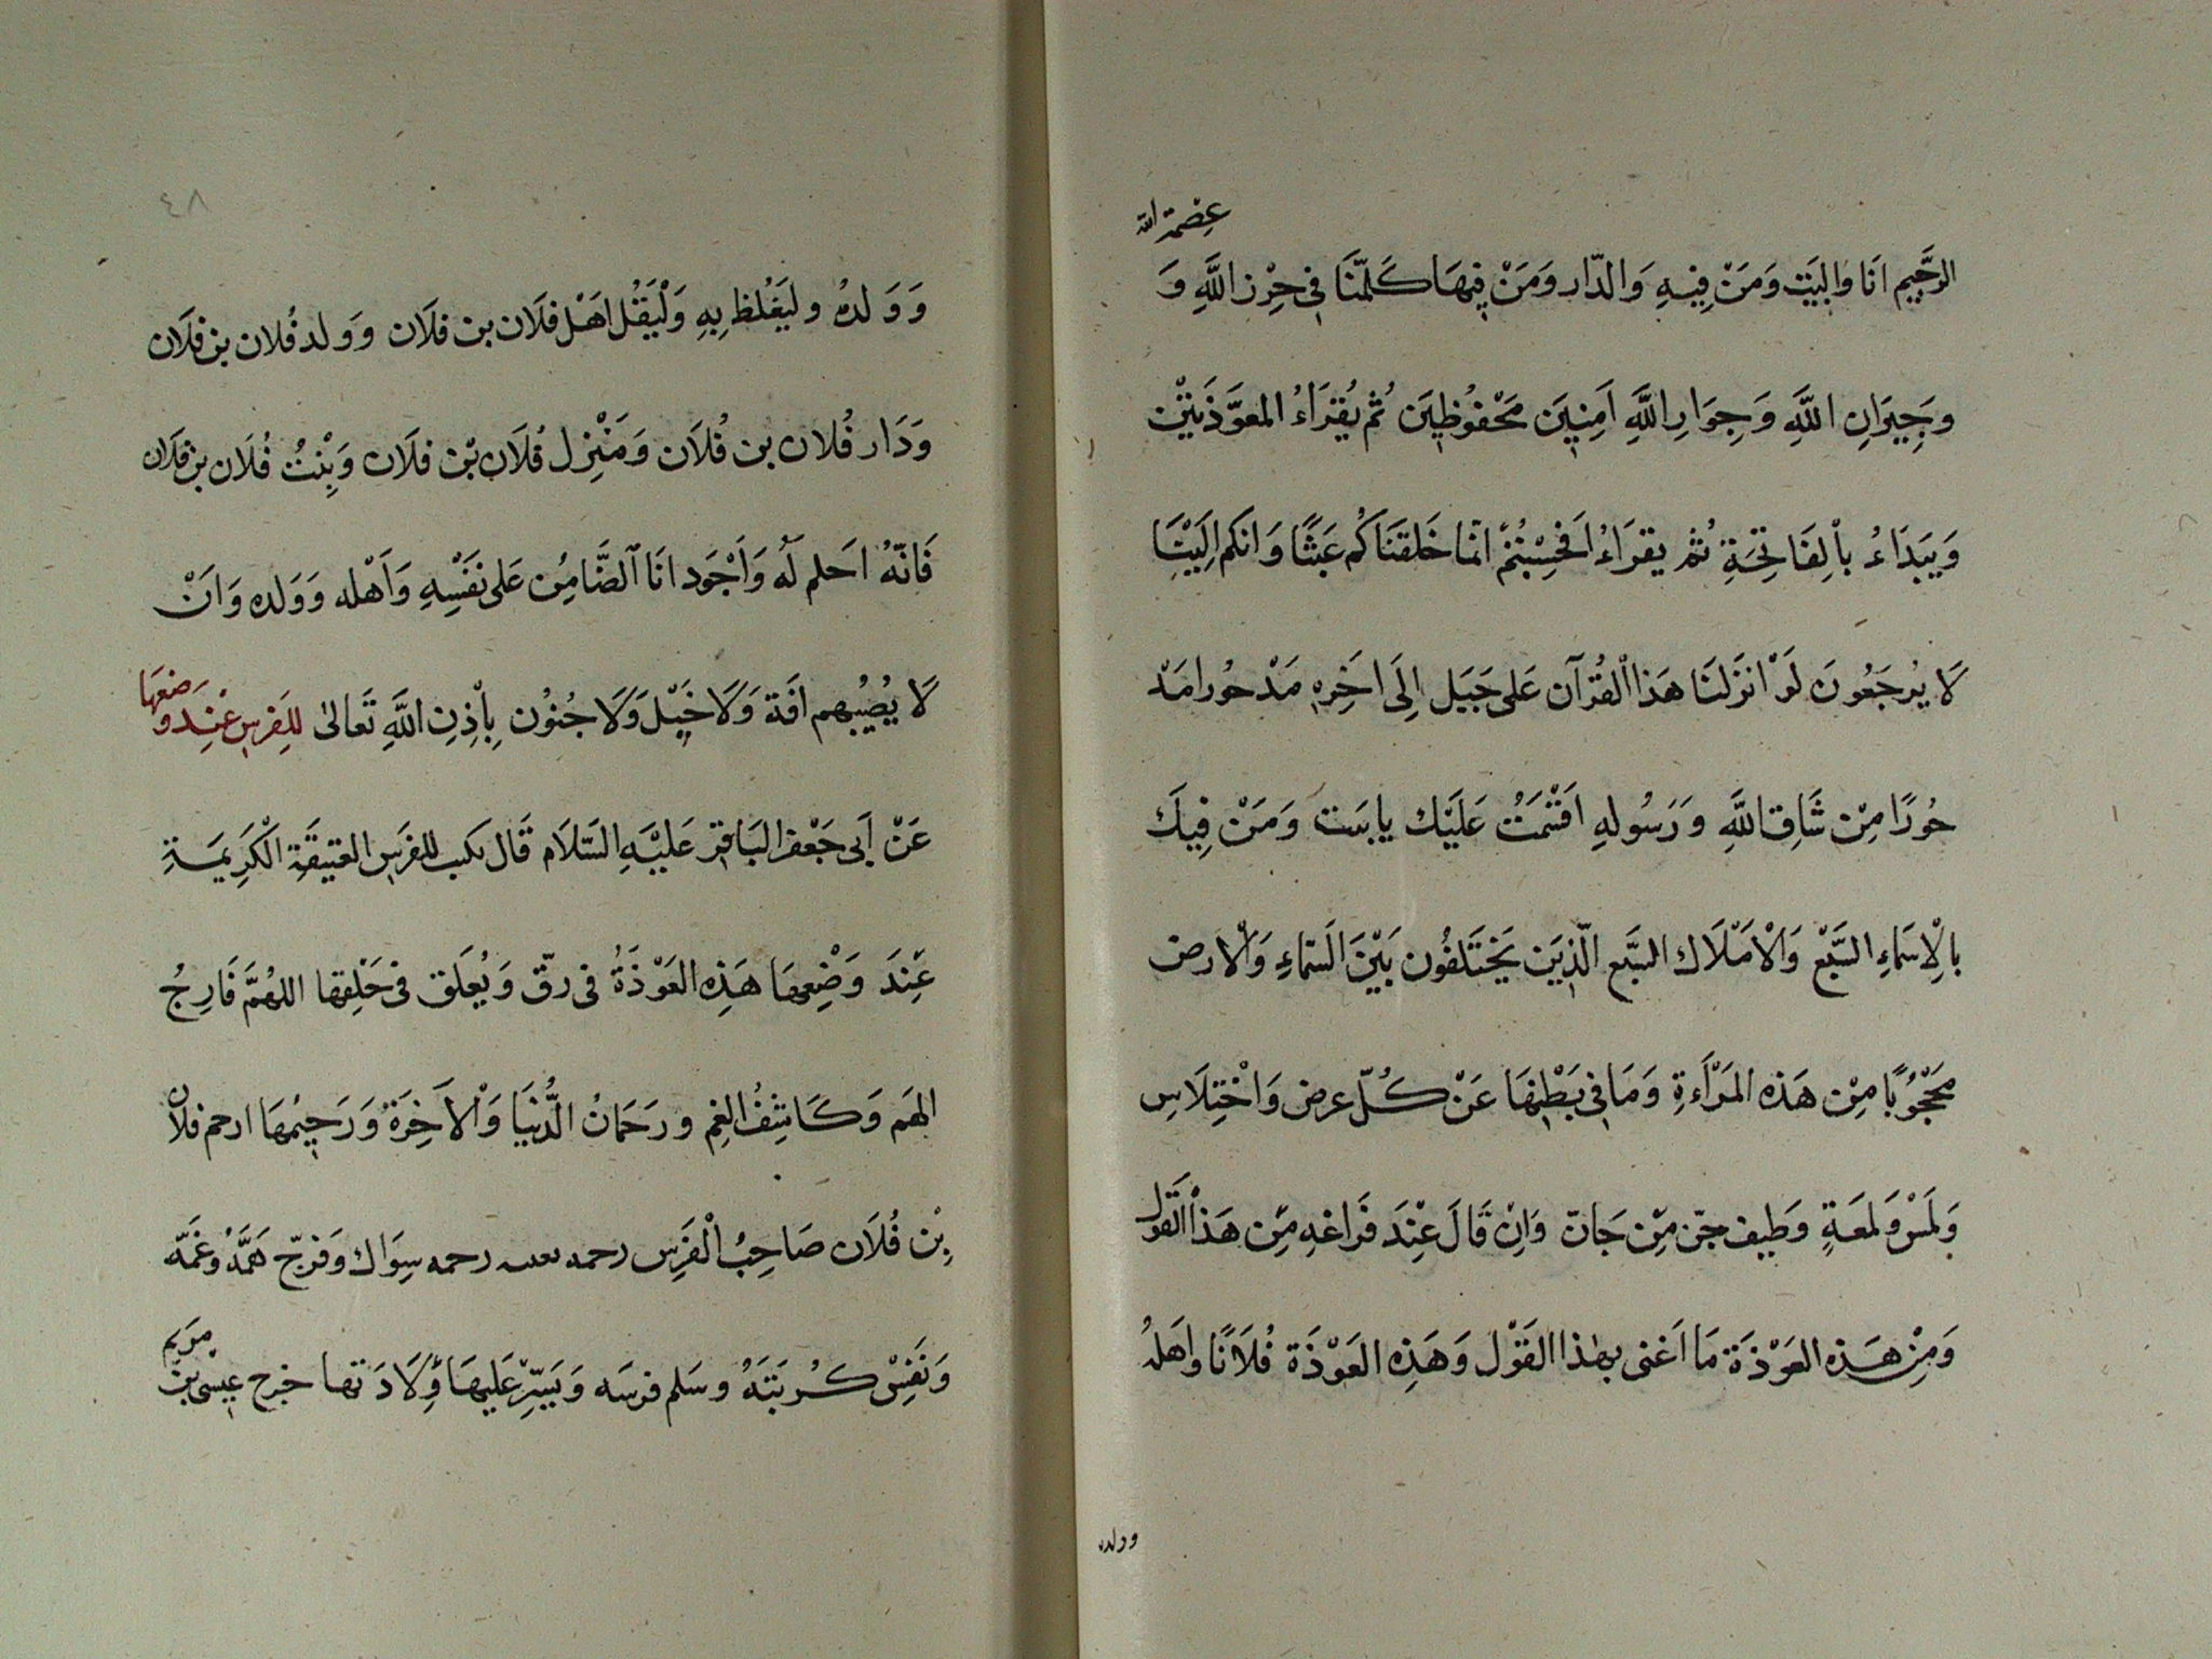 الرَّجِيم اَنَا وَالبَيَت وَمَنْ فِيهِ وَالدّار وَمَنْ فِيهَا كُلّنَا فِي حِرْزِ اللَّهِ وَ عِصْمَة الله
وجِيَرانِ اللَّهِ وَجِوَارِ اللَّهِ آمِنِيَن مَحْفُوُظِيَن ثُم يُقرَاءُ المعوَّذَتيْن
وَيَبَدَاءُ بالِفَاتِحَةِ ثم يقرَاءُ اَفَحِسْبتُمْ انّما خَلقنَاكُم عَبَثًا وَانكم اِلَيْنَا
لَا يُرجَعُونَ لَوْ انزَلنَا هَذا القُرآن عَلى جَبَل اِلَى اَخِرِهِ مَدْحوُرا مَدْ
حُورًا مِنْ شَاق اللَّهِ وَرَسُولِهِ اقسَمتُ عَلَيْك يا بَيت وَمَنْ فِيكَ
بالاِسَماءِ السَّبْع وَالْاَمْلَاك السَّبع الّذِيَن يَخْتَلفُون بَيْنَ السَّماءِ وَالارض
مَحْجُوُبًا مِنْ هَذه المَرْاَءةِ وَمَا فِي بَطْنِهَا عَنْ كُلّ عرض وَاخْتِلَاسٍ
وَلَمْس وَلمعَةٍ وَطيف جنّ مِّن جَانّ وَاِنْ قَالَ عِنْدَ فَراغهِ مِّن هَذا القَول
وَمِنْ هَذه العَوْذَة مَا اَغنى بهٰذا القَوْل وَهَذِه العَوْذَة فُلَانًا واَهَلهُ
وولده
٤٨
وَوَلدهُ وليَغْلظ بِهِ وَلْيَقُل اَهْل فلَان بن فلَان وَوَلد فُلان بن فلَان
وَدَار فُلان بن فُلَان وَمَنْزِل فُلَان بْن فلَان وَبِنْتُ فُلَان بن فلَان
فَانّهُ احَلم لَهُ وَاَجْوَد انَا الضَّامِنُ عَلى نَفْسِهِ وَاَهْله وَوَلده وَانَْ
لَا يُصُيبهم اَفَة وَلَا خَبَل وَلَا جُنوُن بِاْذِنِ اللَّهِ تَعالىٰ للِفرسِ عِنْد وَضعهَا
عَنْ اَبى جَعْفر البَاقر عَليْهِ السَّلَام قَال يكتب للفرَسِ العتيقَةِ الْكَرِيَمةِ
عِنْدَ وَضْعِهَا هَذِه العَوْذَةُ فى رقّ وَيُعَلق فى حَلْقِها اللهُمَّ فَارِجُ
الهَم وَكَاشِفُ الغِم ورَحَمانُ الدُّنيَا وَالْاخِرَةِ وَرَحِيُمهَا ارحم فلان
بْن فُلَان صَاحِبُ الْفَرَسِ رحمه رحمه سِوَاك وَفرجّ هَمَّهُ وغمَّه
وَنفِسّْ كُربَتَهُ وسَلم فرسَه وَيَسِّرْ عَليهَا وِلَادَتها خرج عِيسَى بن مريم